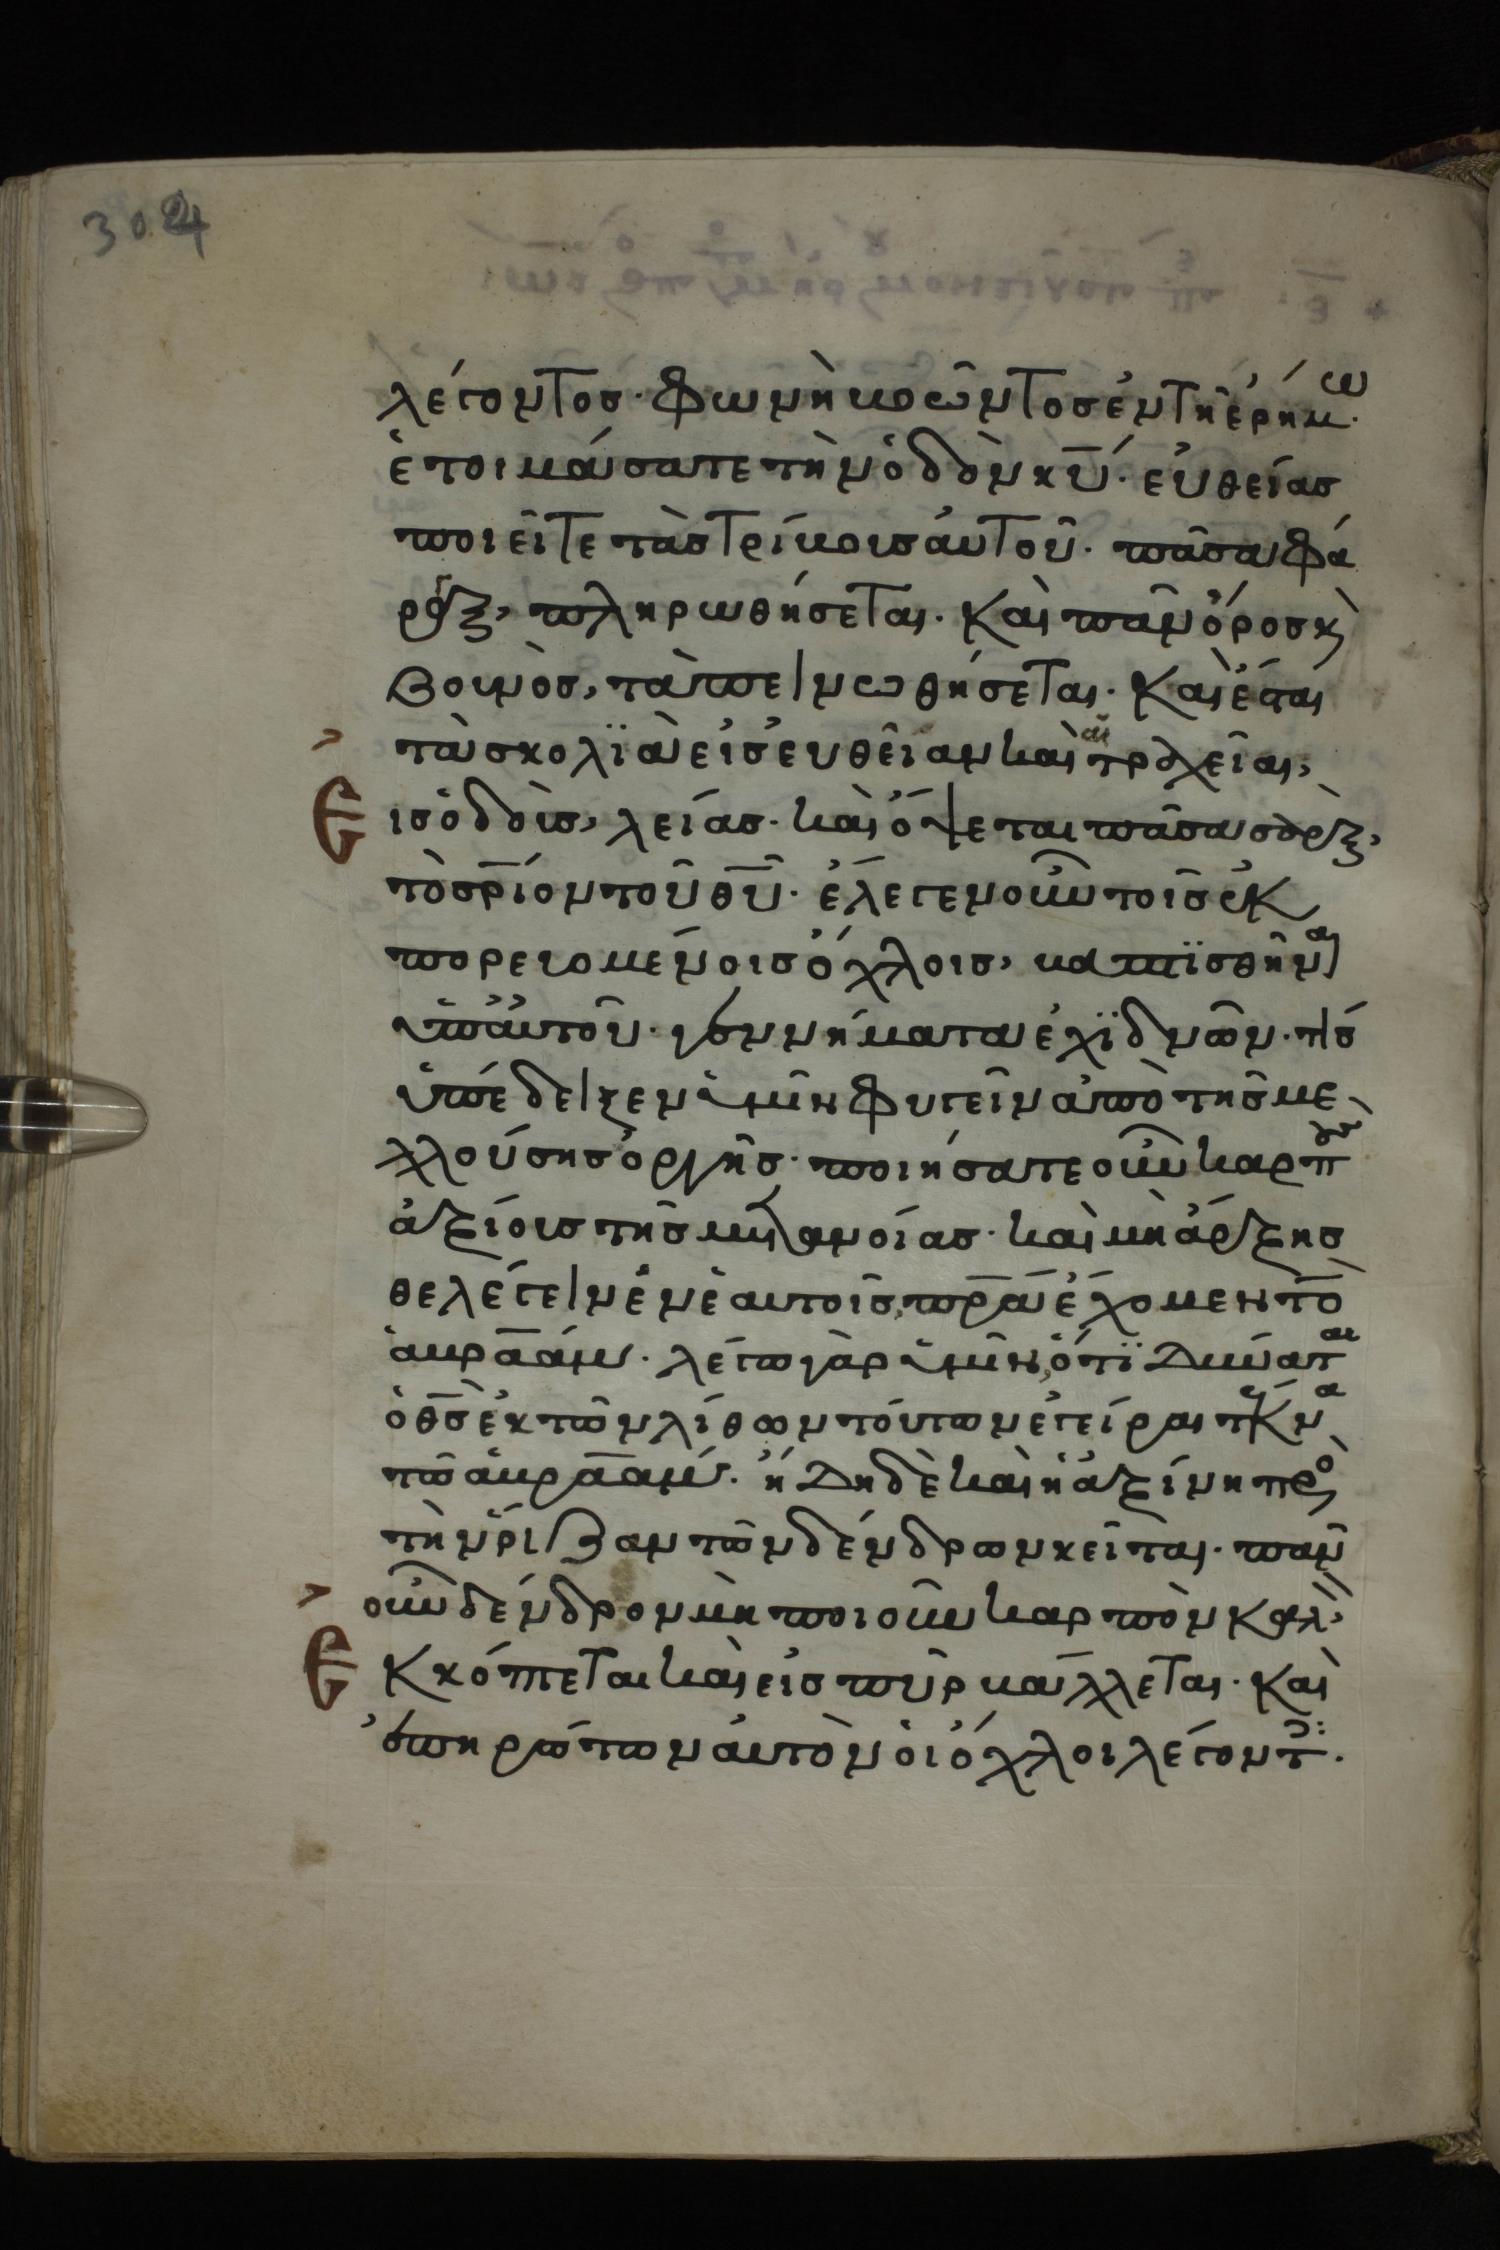 304
λέγοντος· φωνὴ βοῶντος ἐν τῆ ἐρήμω·
ἑτοιμάσατε τὴν ὁδὸν κυ̅· εὐθείας
ποιεῖτε τὰς τρίβους αὐτοῦ· πᾶσα φά
ραγξ, πληρωθήσεται· καὶ πᾶν ὄρος κ̀
βουνὸς, ταπεινωθήσεται· καὶ ἔσται
τὰ σκολϊὰ εἰς εὐθεῖαν καὶ αἱ τραχεῖαι,
Ἐισ ὁδοὺς, λείας· καὶ ὄψεται πᾶσα σὰρξ,
τὸ σρ̅ίον τοῦ θυ̅· ἔλεγεν οὖν τοῖς ἐκ
πορευομένοις ὄχλοις, βαπτϊσθῆναι
ὑπ' αὐτοῦ· γεννήματα ἐχϊδνῶν· τίς
ὑπέδειξεν ὑμῖν φυγεῖν ἀπὸ τῆς με
λλούσης ὀργῆς· ποιήσατε οὖν καρποὺς
ἀξίους τῆς μετανοίας· καὶ μὴ ἄρξησ
θε λέγειν ἐν ἑαυτοῖς, πρ̅α ἔχομεν τὸ
ἀβραάμ· λέγω γὰρ ὑμῖν, ὅτϊ δύναται
ὁ θς̅ ἐκ τῶν λίθων τούτων ἐγεῖραι τέκνα
τῶ ἀβραάμ· ἤδη δὲ καὶ ἡ ἀξίνη πρὸς
τὴν ῥίζαν τῶν δένδρων κεῖται· πᾶν
οὖν δένδρον μὴ ποιοῦν καρπὸν καλὸν,
Ἐκκόπτεται καὶ εἰς πῦρ βάλλεται· καὶ
ἐπηρώτων αὐτὸν οἱ ὄχλοι λέγοντες·